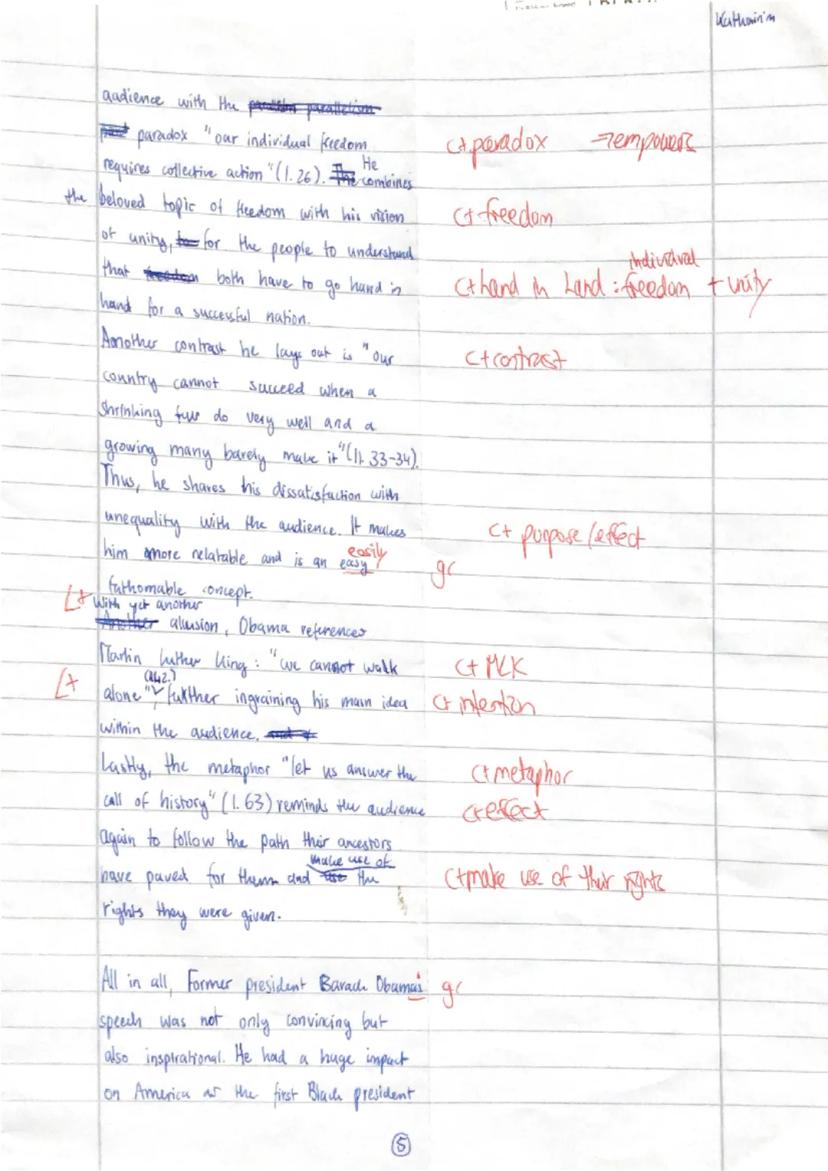 Katharin
audience with the parallelism
paradox "our individual freedom c+ paradox ⇒ empowers
requires collective action" (l. 26). The He combines
the beloved topic of freedom with his vision c+ freedom
of unity, to for the people to understand
that freedom both have to go hand in c+ hand in hand : individual freedom + unity
hand for a successful nation.
Another contrast he lays out is "our c+ contrast
country cannot succeed when a
shrinking few do very well and a
growing many barely make it" (ll. 33-34).
Thus, he shares his dissatisfaction with
unequality with the audience. It makes c+ purpose/effect
him more relatable and is an easy easily gr
fathomable concept.
L+ With yet another
Another allusion, Obama references
Martin Luther King: "we cannot walk c+ MLK
L+ alone" (l.42), further ingraining his main idea c+ intention
within the audience.
Lastly, the metaphor "let us answer the c+ metaphor
call of history" (l. 63) reminds the audience c+ effect
again to follow the path their ancestors
have paved for them and use make use of the c+ make use of their rights
rights they were given.
All in all, Former president Barack Obamas gr
speech was not only convincing but
also inspirational. He had a huge impact
on America as the first Black president
5